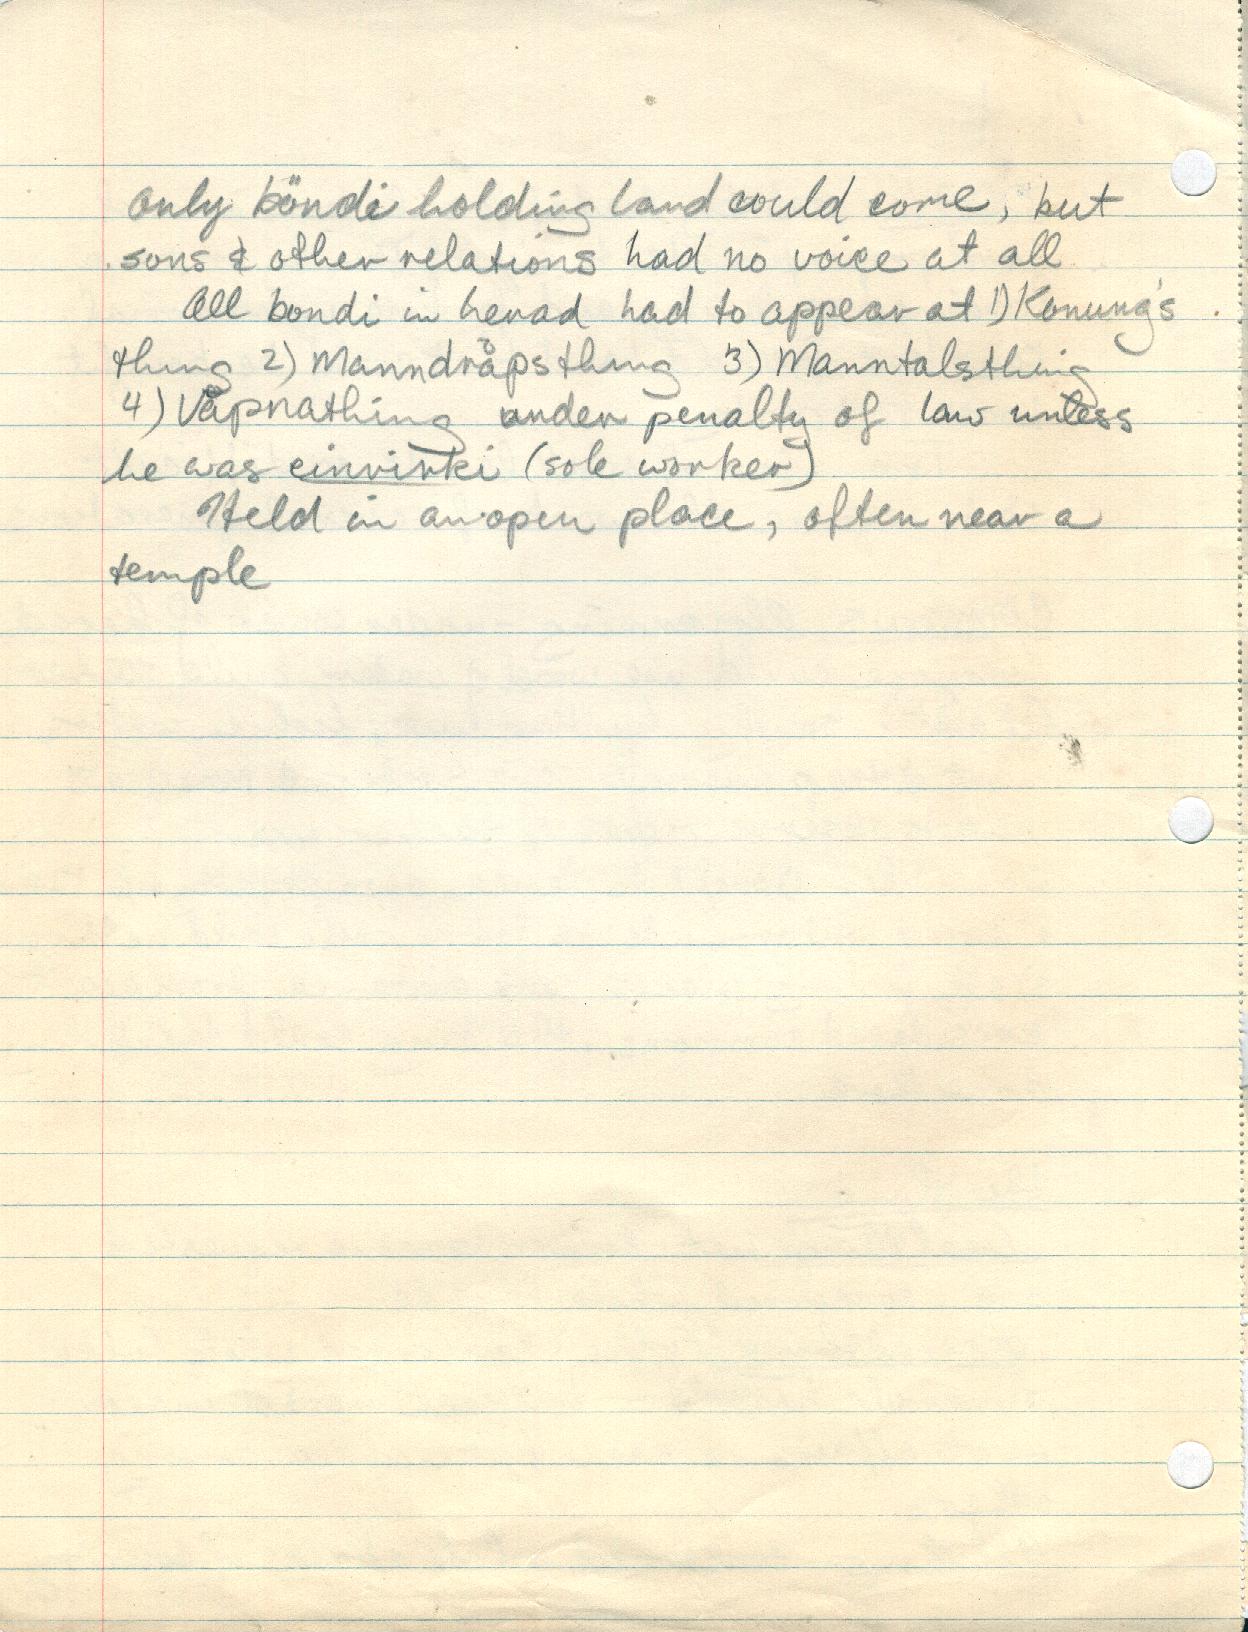 Only böndi holding land could come, but
sons & other relations had no voice at all
All bondi in herad had to appear at 1) Konung's
thing 2) Manndråpsthing 3) Manntalsthing
4) Våpnathing under penalty of law unless
he was einvirki (sole worker)
Held in an open place, often near a
temple